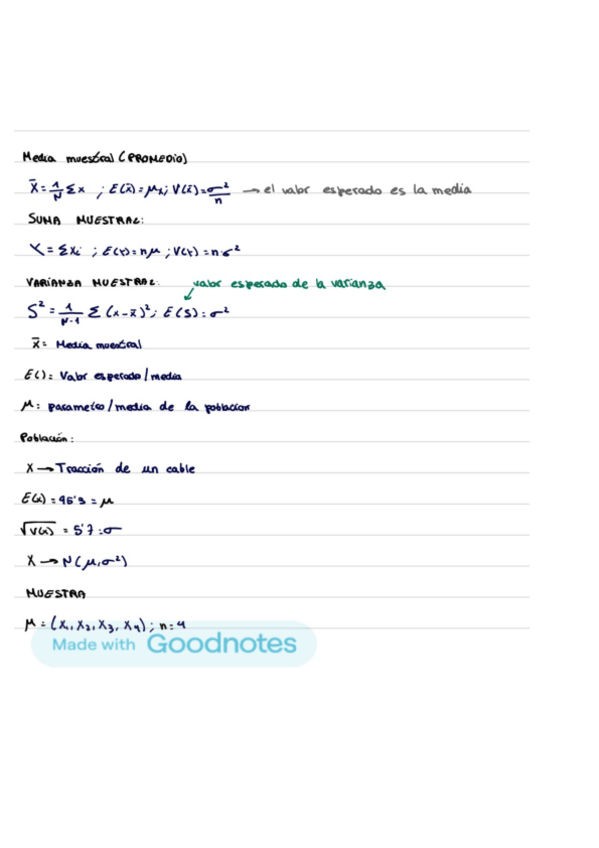 Media muestral (PROMEDIO)
X̄ = 1/N Σx ; E(x̄) = μx ; V(x̄) = σ²/n → el valor esperado es la media
SUMA MUESTRAL:
Y = Σxi ; E(Y) = nμ ; V(Y) = n·σ²
VARIANZA MUESTRAL: valor esperado de la varianza
S² = 1/N-1 Σ (x-x̄)² ; E(S) = σ²
x̄ = Media muestral
E() = Valor esperado/media
μ = parametro/media de la poblacion
Población:
X → Tracción de un cable
E(x) = 46'3 = μ
√V(x) = 5'7 = σ
X → N(μ, σ²)
MUESTRA
μ = (x1, x2, x3, x4) ; n = 4
Made with Goodnotes